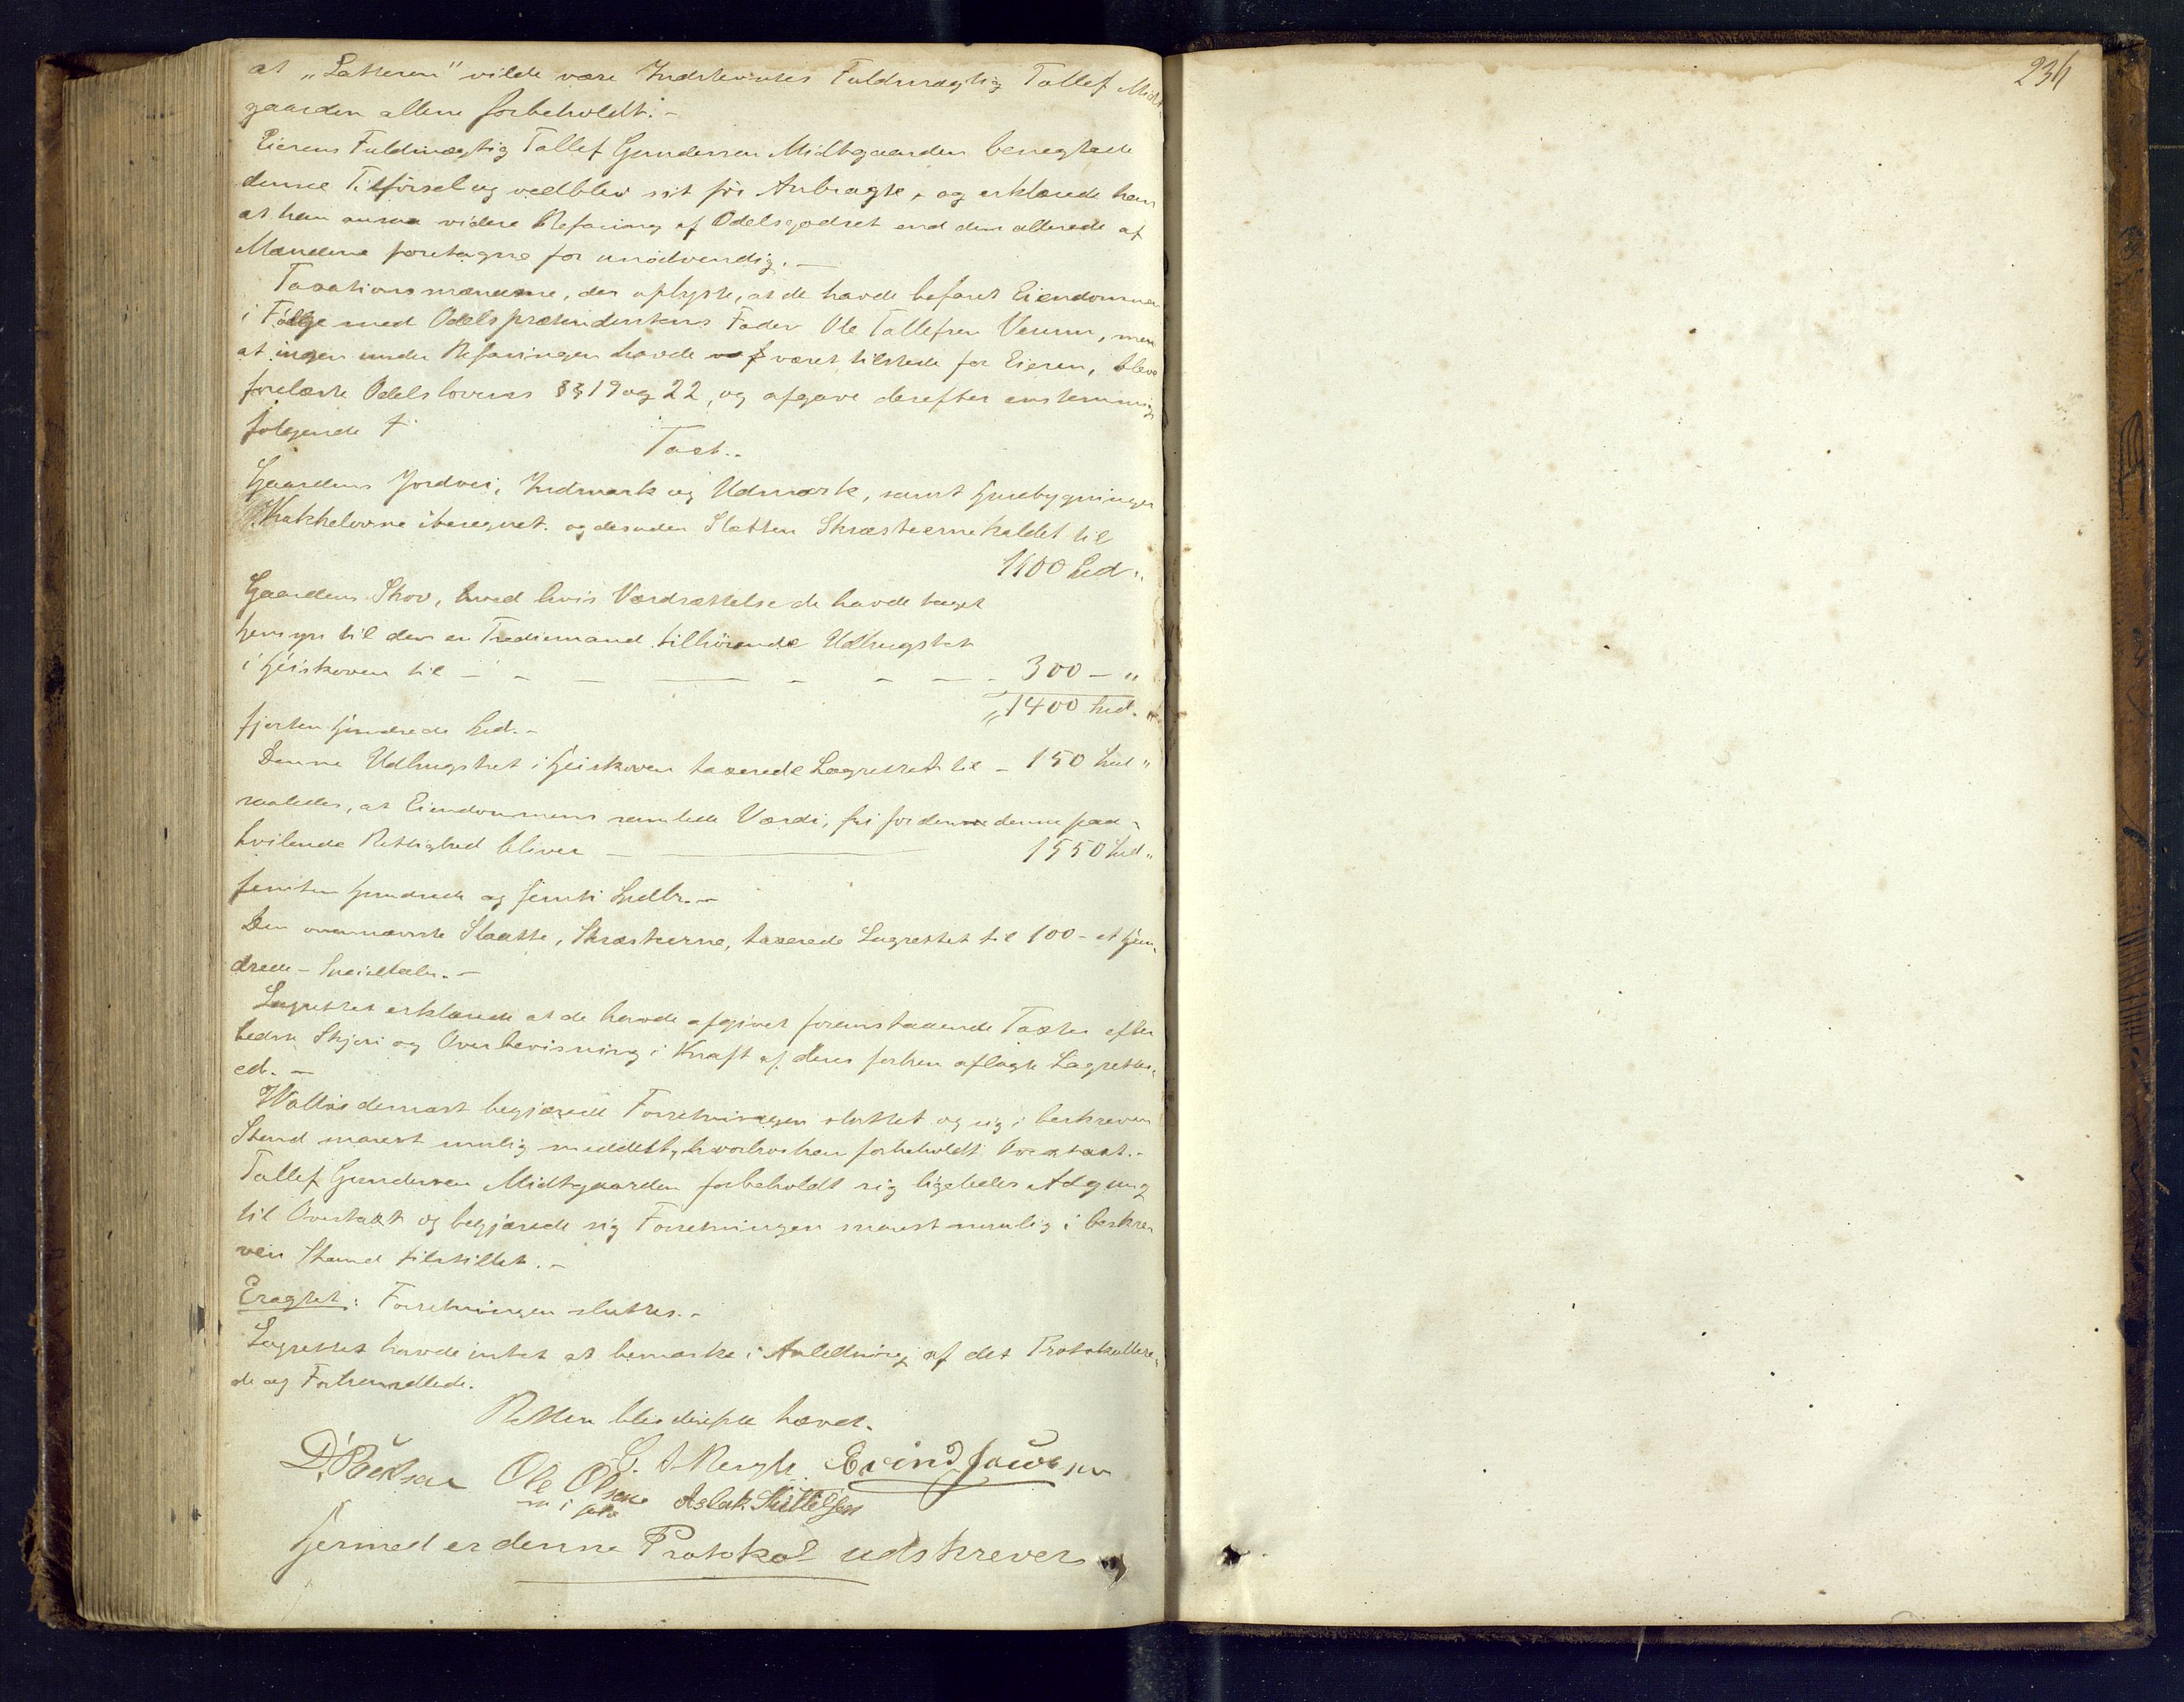 at "Latteren" vilde være Indstevntes Fuldmægtig Tallef Midt
gaarden allene forbeholdt.-
Eierens Fuldmægtig Tallef Gundersen Midtgaarden benegtede
denne Tilførsel og vedblev sit før Anbragte, og erklærede han
at han ansaa videre Befaring af Odelsgodset end den allerede af
Mændene foretagne for unødvendig.-
Taxationsmændene, der oplyste, at de havde befaret Eiendommen
i Følge med Odelsprætendentens Fader Ole Tallefsen Venum, men
at ingen under Befaringen havde været tilstede for Eieren, blev
forelæste Odelslovens §§ 19 og 22, og afgave derefter enstemmig
følgende
Taxt..
Gaardens Jordvei, Indmark og Udmark, samt Husebygninger
Kakkelovne iberegnet. og desuden Slætten Skræsteerne kaldet til
1100 Spd "
Gaardens Skov, hved hvis Værdsættelse de havde taget
Hensyn til den en Trediemand tilhørende Udhugstret
i Heiskoven til - - - - - - - 300 - "
" 1400 Spd. "
fjorten Hundrede Spd.-
Denne Udhugstret i Heiskoven taxerede Lagrettet til - 150 Spd "
saaledes, at Eiendommens samlede Værdi, fri for denne paa-
hvilende Rettighed bliver - - 1550 Spd "
femten Hundrede og femti Spdlr.-
Den ovennævnte Slaatte, Skræsteerne, taxerede Lagrettet til 100 - et Hun-
drede - Speciedaler.-
Lagrettet erklærede at de havde afgivet foranstaaende Taxter efter
bedste Skjøn og Overbevisning i Kraft af deres forhen aflagte Lagrettes-
ed.-
Wattne dernæst begjærede Forretningen sluttet og sig i beskreven
Stand snarest mulig meddelt, hvorhos han forbeholdt Overtaxt.-
Tallef Gundersen Midtgaarden forbeholdt sig ligeledes Adgang
til Overtaxt og begjærede sig Forretningen snarest mulig i beskre
ven Stand tilstillet.-
Eragtet: Forretningen sluttes.-
Lagrettet havde intet at bemærke i Anledning af det Protokollere-
de og Forhandlede.
Retten blev derefter hævet.
Ole Olsen Evind Jacobsen
m i p Aslak Kittelsen
Hermed er denne Protokol udskreven
234